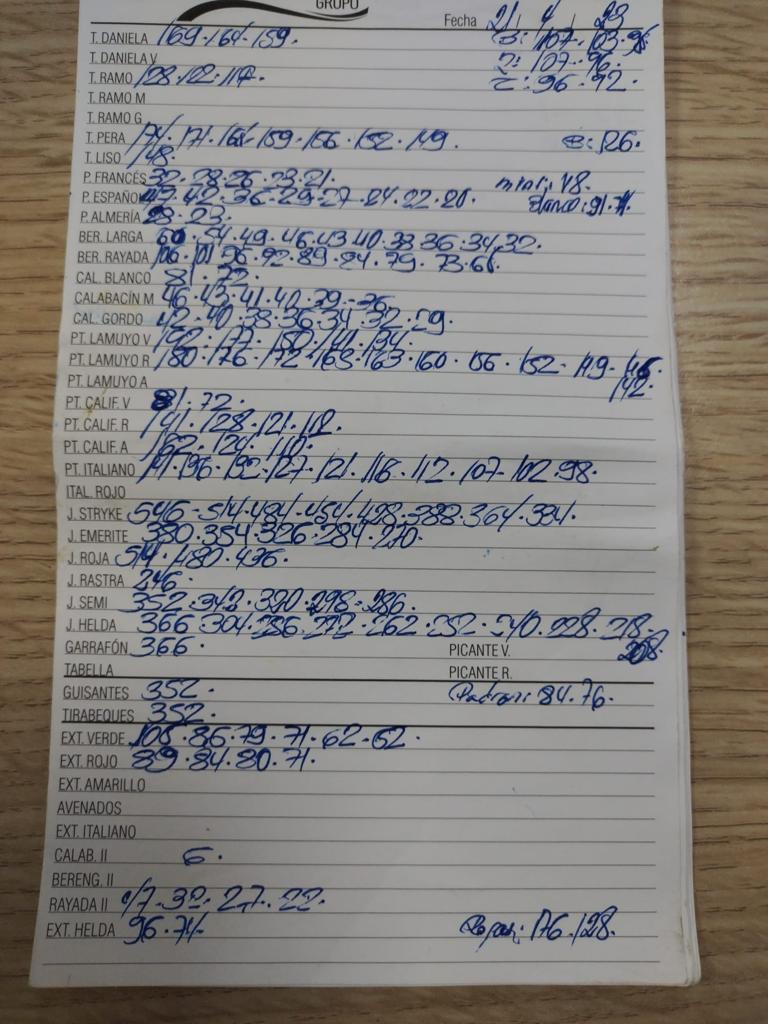 GRUPO
Fecha 21 4 23
T. DANIELA 169.164.159. 3: 107.103.96
T. DANIELA V 2: 107.96.
T. RAMO 128.122.117. 2: 96.92.
T. RAMO M
T. RAMO G
T. PERA 174.171.168.159.156.152.149. 126.
T. LISO 148.
P. FRANCÉS 32.28.26.23.21. 48.
P. ESPAÑOL 49.42.36.29.27.24.22.20. Blanco: 91.71.
P. ALMERÍA 28.23.
BER. LARGA 60.54.49.46.43.40.38.36.34.32.
BER. RAYADA 106.101.96.92.89.84.79.73.68.
CAL. BLANCO 81.72.
CALABACÍN M 46.43.41.40.39.36.
CAL. GORDO 42.40.38.36.34.32.29.
PT. LAMUYO V 192.177.150.141.134.
PT. LAMUYO R 180.176.172.168.163.160.156.152.149.146.
PT. LAMUYO A 142.
PT. CALIF. V 81.72.
PT. CALIF. R 141.128.121.112.
PT. CALIF. A 162.124.110.
PT. ITALIANO 141.136.132.127.121.118.112.107.102.98.
ITAL. ROJO
J. STRYKE 546.514.484.454.428.388.364.334.
J. EMERITE 380.354.326.284.270.
J. ROJA 514.480.436.
J. RASTRA 246.
J. SEMI 352.342.320.298.286.
J. HELDA 366.304.286.272.262.252.240.228.218.
GARRAFÓN 366. PICANTE V. 208.
TABELLA PICANTE R.
GUISANTES 352. Padron: 84.76.
TIRABEQUES 352.
EXT. VERDE 108.86.79.71.62.62.
EXT. ROJO 89.84.80.71.
EXT. AMARILLO
AVENADOS
EXT. ITALIANO
CALAB. II 6.
BERENG. II
RAYADA II 47.32.27.22.
EXT. HELDA 96.74 176.128.